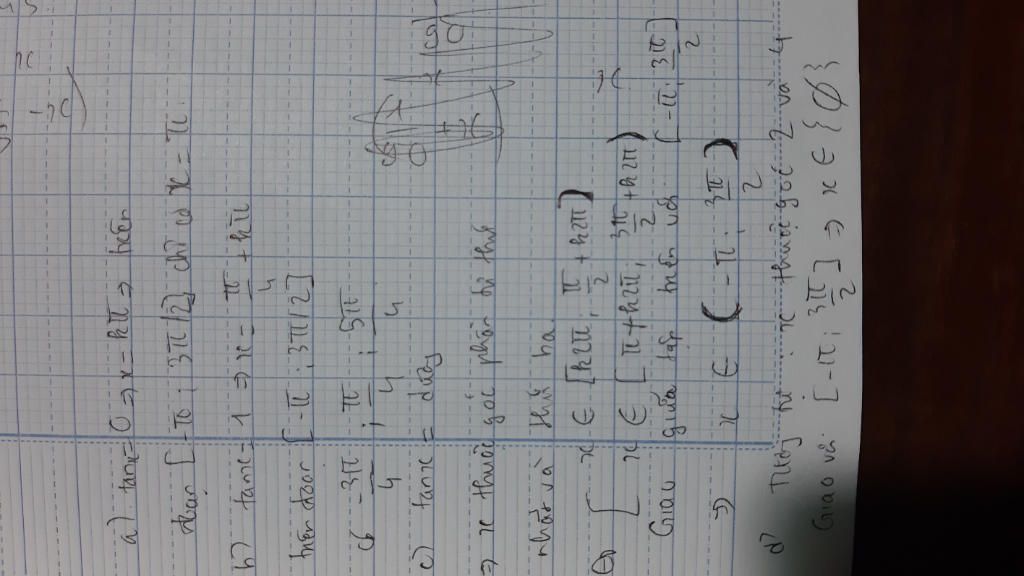 a) tanx = 0 ⇒ x = kπ ⇒ trên
đoạn [-π ; 3π/2] chỉ có x = π.
b) tanx = 1 ⇒ x = π/4 + kπ
trên đoạn [-π ; 3π/2]
có -3π/4 ; π/4 ; 5π/4
c) tanx = dương
⇒ x thuộc góc phần tư thứ
nhất và thứ ba.
⇔ [ x ∈ [k2π ; π/2 + k2π)
x ∈ [π + k2π ; 3π/2 + k2π)
Giao giữa tập trên với [-π ; 3π/2]
⇒ x ∈ (-π ; 3π/2)
d) Tương tự : x thuộc góc 2 và 4
Giao với [-π ; 3π/2] ⇒ x ∈ {∅}